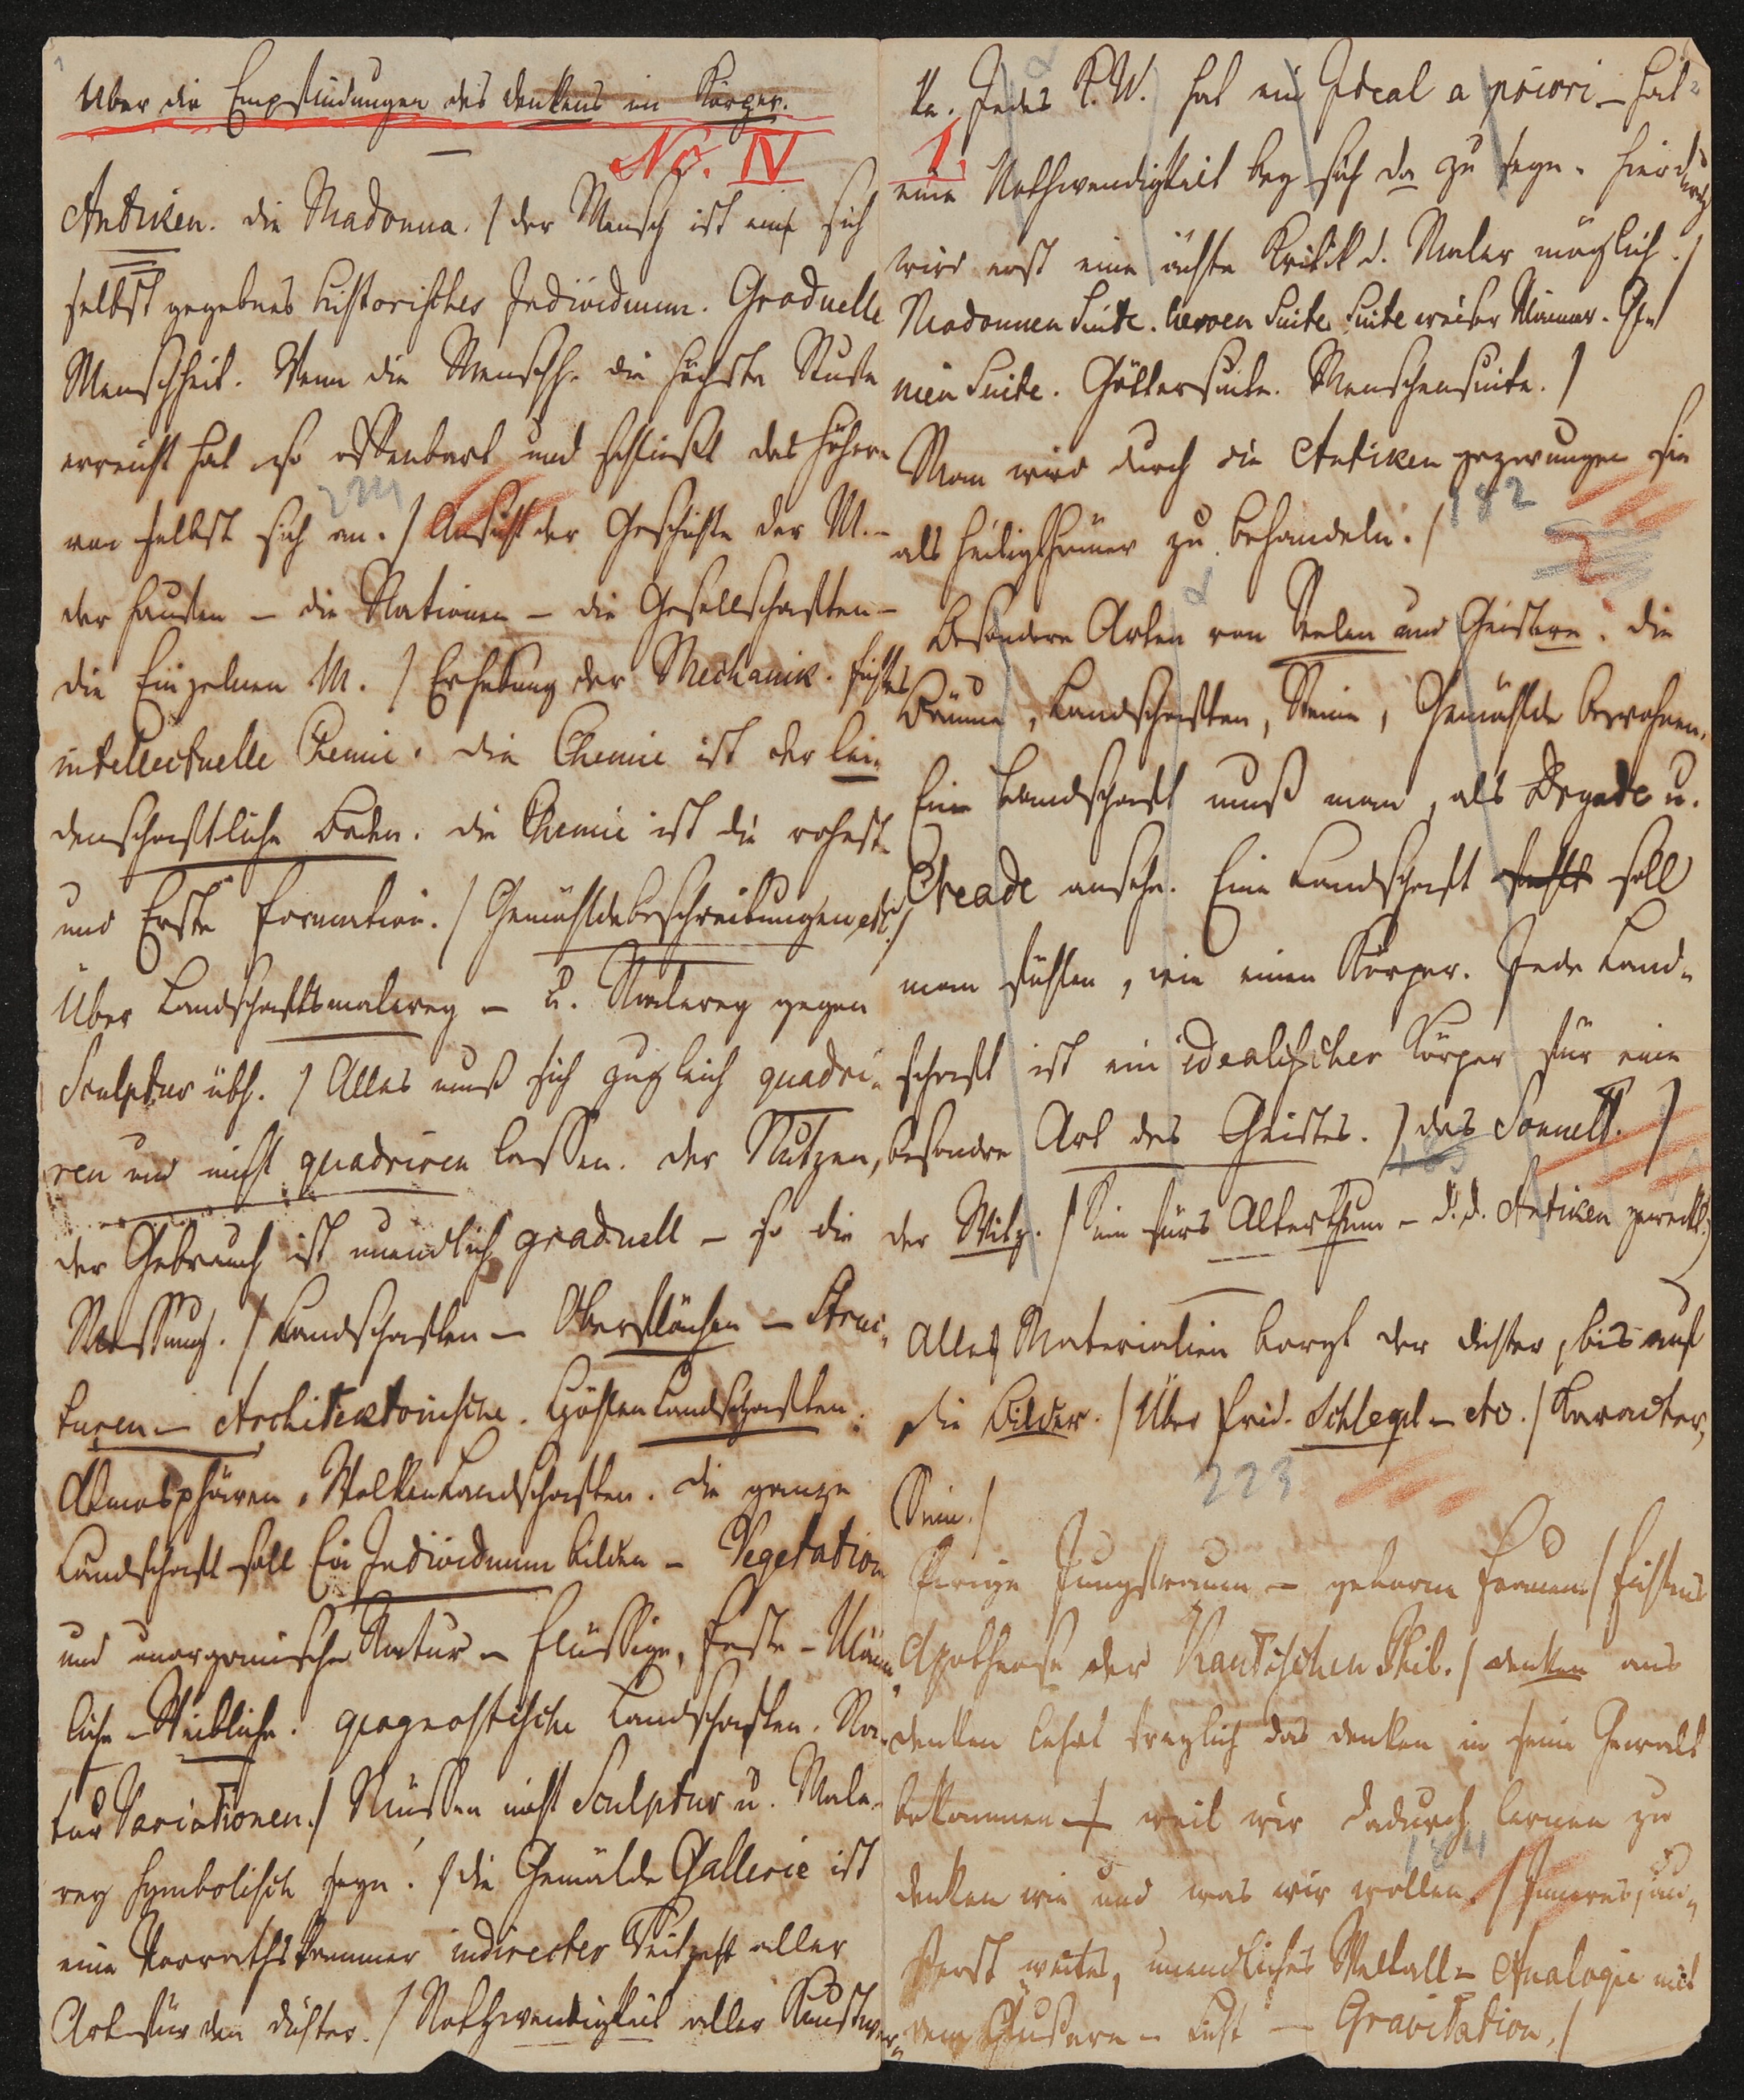 Uber die Empfindungen des Denkens im Körper.
No. IV
Antiken. Die Madonna. / Der Mensch ist ein sich
selbst gegebnes historisches Individuum. Graduelle
Menschheit. Wenn die Menschh. die höchste Stufe
erreicht hat so offenbart und schließt das höhere
von selbst sich an. / Ansicht der Geschichte der M. –
der Haufen – die Nationen – die Gesellschaften –
die Einzelnen M. / Erhebung der Mechanik. Fichtes
intellectuelle Chemie. Die Chemie ist der lei-
denschaftliche Boden. Die Chemie ist die roheste
und Erste Formation. / Gemähldebeschreibungen etc. /
Über Landschaftsmalerey – u. Malerey gegen
Sculptur übh. / Alles muß sich zugleich quadri-
ren und nicht quadriren lassen. Der Nutzen,
der Gebrauch ist unendlich graduell – so die
Messung. / Landschaften – Oberflächen – Struc-
turen – Architektonische. Höhlen Landschaften.
Atmosphären, Wolken Landschaften. Die ganze
Landschaft soll Ein Individuum bilden – Vegetation
und unorganische Natur – Flüssige, Feste – Männ-
liche – Weibliche. geognostische Landschaften. Na-
tur Variationen. / Müssen nicht Sculptur u. Male-
rey symbolisch seyn. / Die Gemälde Gallerie ist
eine Vorrathskammer indirecter Reitze aller
Art für den Dichter. / Nothwendigkeit aller Kunstwer-
ke. Jedes K.W. hat ein Ideal a priori – hat
1.
eine Nothwendigkeit bey sich da zu seyn. Hierdurch
wird erst eine ächte Kritik d. Maler möglich. /
Madonnen Suite. Heroen Suite Suite weiser Männer. Ge-
nien Suite. Göttersuite. Menschensuite. /
Man wird durch die Antiken gezwungen sie
als Heiligthümer zu behandeln. /
182
Besondere Arten von Seelen und Geistern. Die
Bäume, Landschaften, Steine, Gemählde bewohnen.
Eine Landschaft muß man, als Dryade u.
Oreade ansehn. Eine Landschaft soll
man fühlen, wie einen Körper. Jede Land-
schaft ist ein idealischer Körper für eine
besondre Art des Geistes. / Das Sonnett. /
Der Witz. / Sinn fürs Alterthum – d. d. Antiken geweckt. /
Alles Materialien borgt der Dichter, bis auf
die Bilder. / Über Frid. Schlegel – etc. / Karacter,
Sinn. /
223
Ewige Jungfrauen – geborne Frauen / Fichtens
Apotheose der Kantischen Phil. / Denken ans
Denken lehrt freylich das Denken in seine Gewalt
bekommen – weil wir dadurch lernen zu
denken wie und was wir wollen. / Innres, äu-
ßerst weites, unendliches Weltall – Analogie mit
dem Äußern – Licht – Gravitation. /